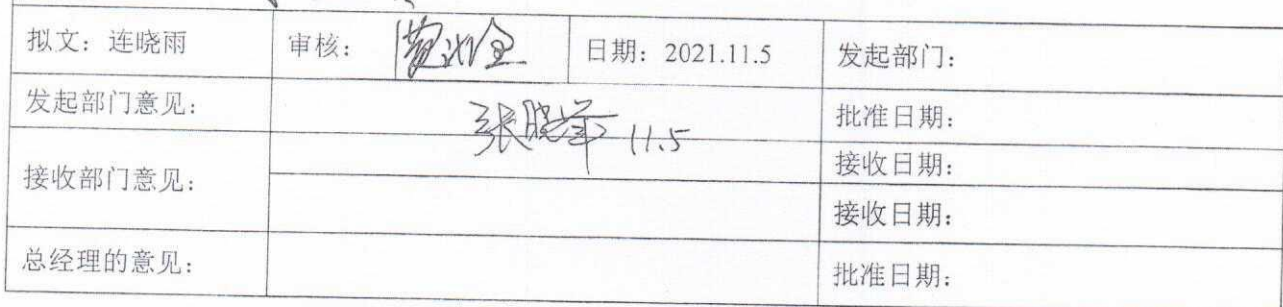 拟文：连晓雨 审核： 日期：2021.11.5 发起部门：
发起部门意见： 张晓苹 11.5 批准日期：
接收部门意见： 接收日期：
接收日期：
总经理的意见： 批准日期：